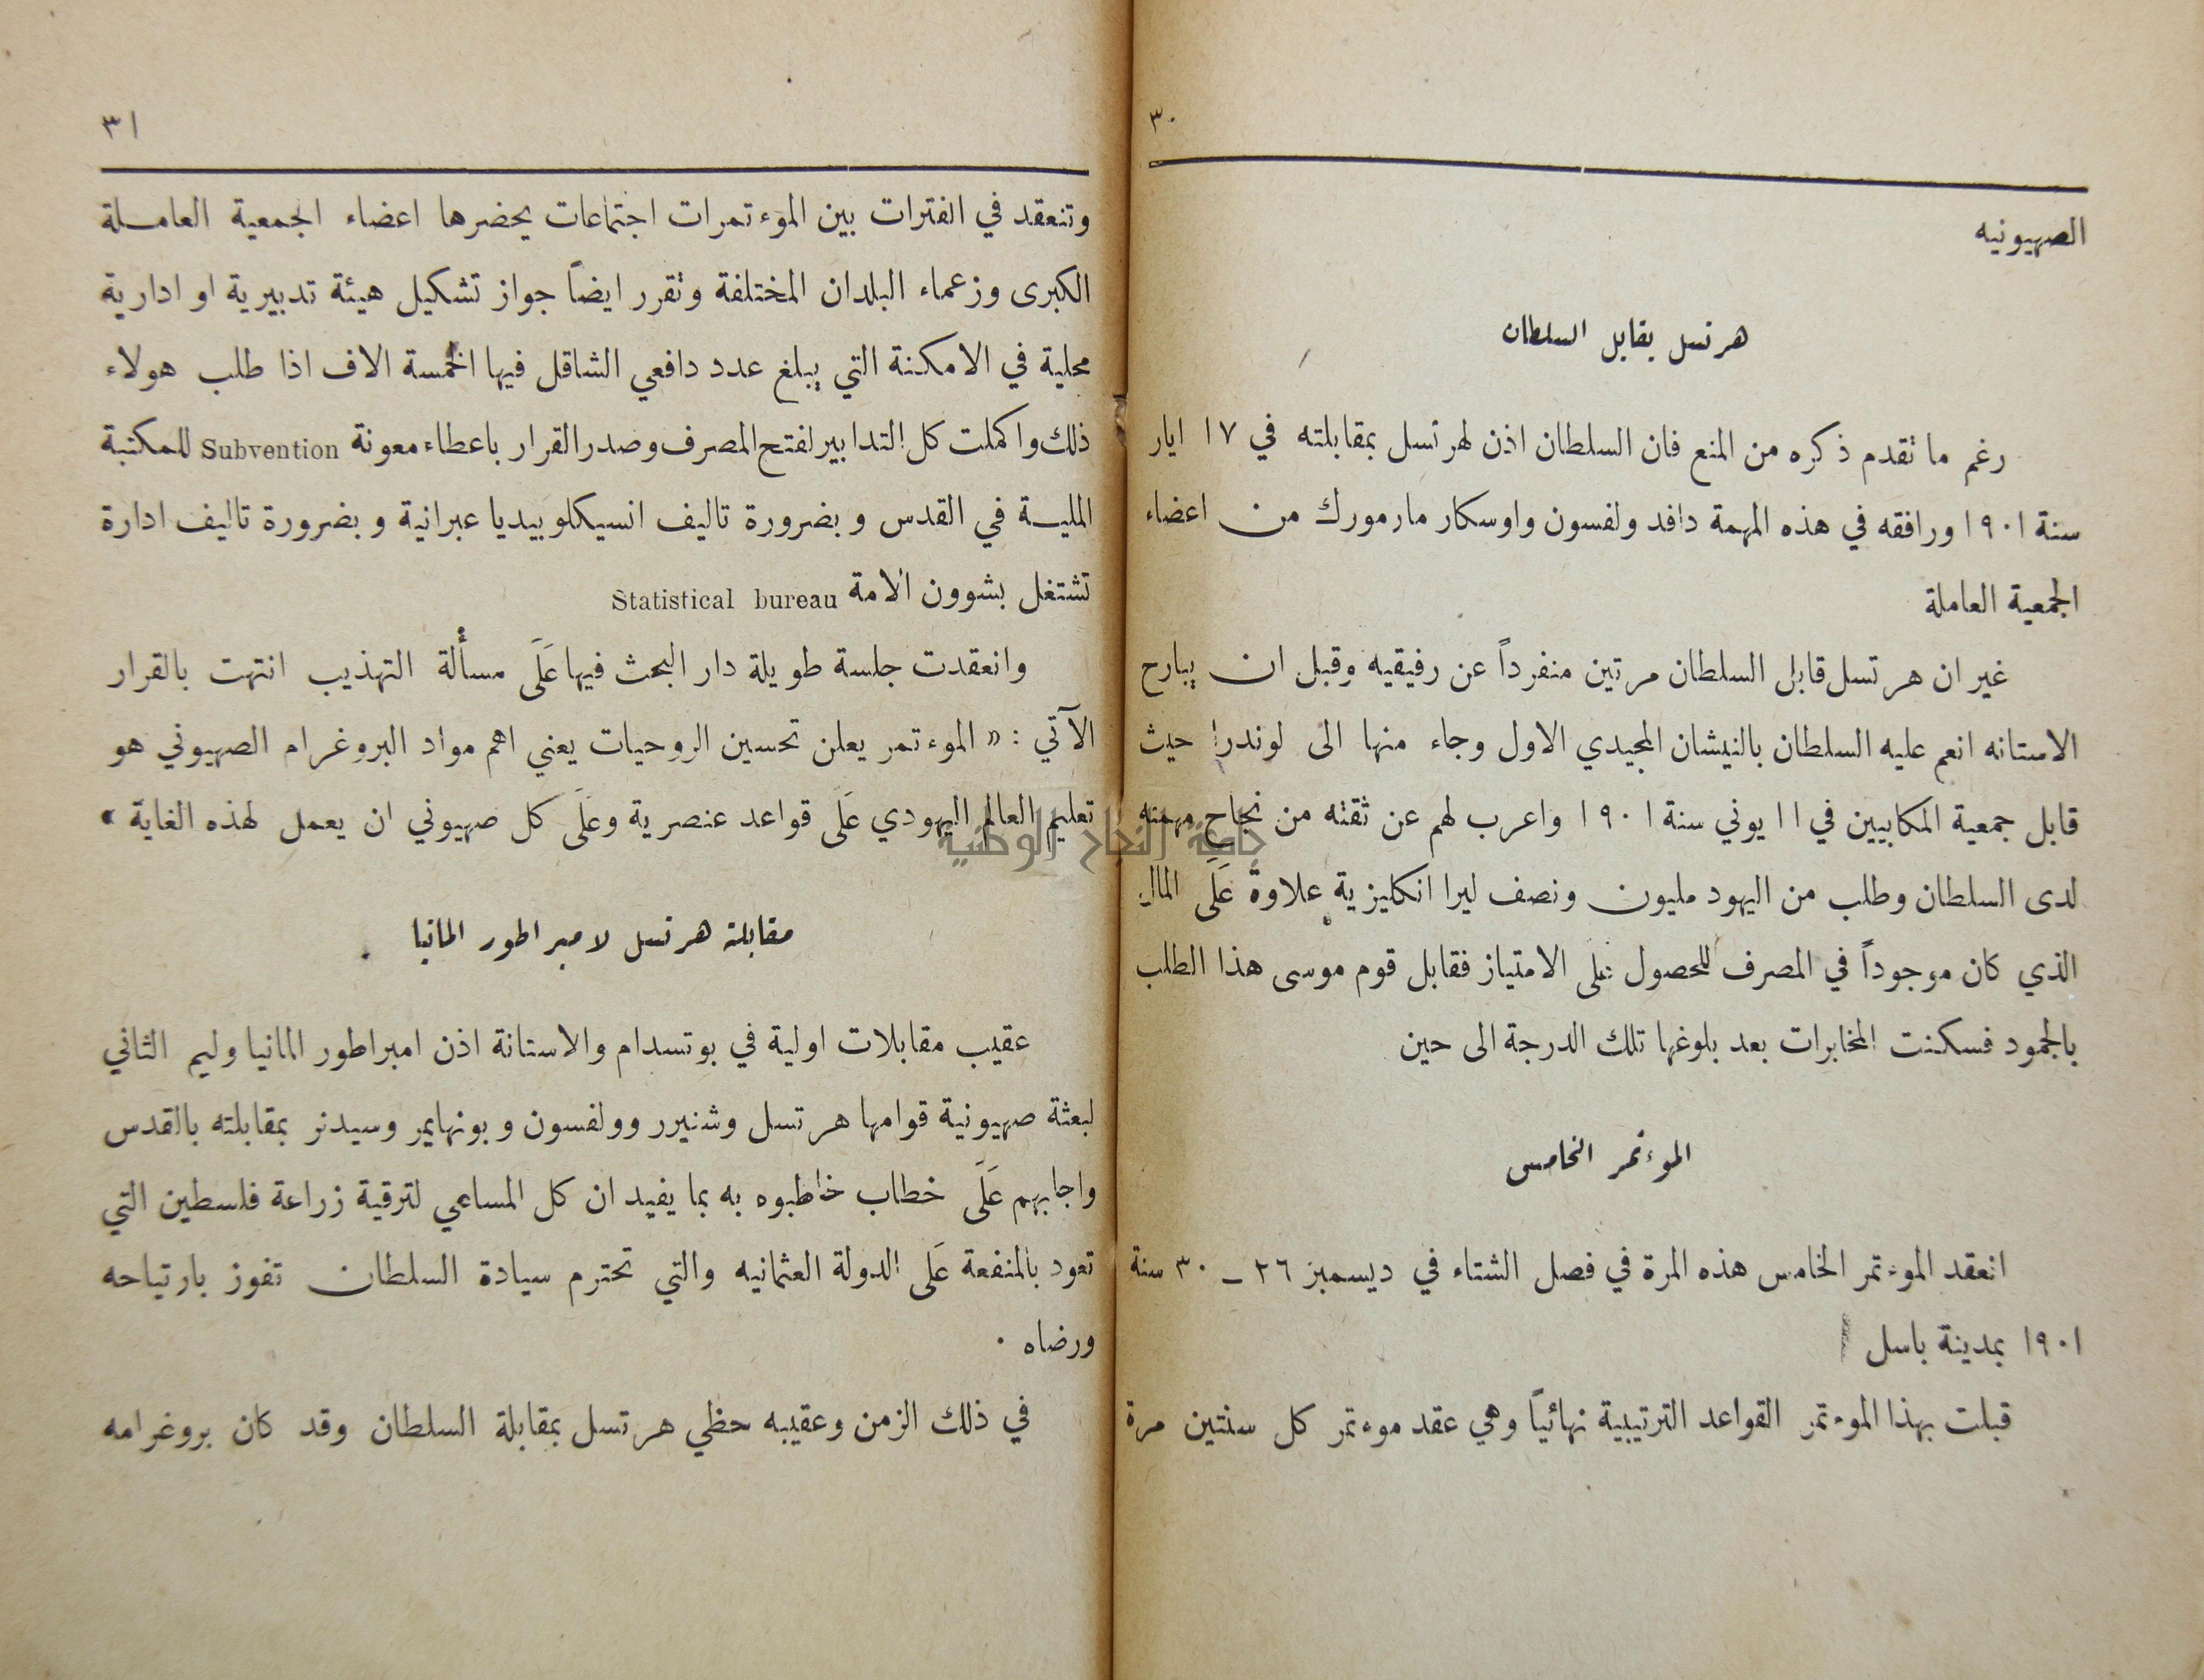 ٣٠
الصهيونيه
هرتسل يقابل السلطان
رغم ما تقدم ذكره من المنع فان السلطان اذن لهرتسل بمقابلته في ١٧ ايار
سنة ١٩٠١ ورافقه في هذه المهمة دافد ولفسون واوسكار مارمورك من اعضاء
الجمعية العاملة
غير ان هرتسل قابل السلطان مرتين منفرداً عن رفيقيه وقبل ان يبارح
الاستانه انعم عليه السلطان بالنيشان المجيدي الاول وجاء منها الى لوندرا حيث
قابل جمعية المكابيين في ١١ يوني سنة ١٩٠١ واعرب لهم عن ثقته من نجاح مهمته
لدى السلطان وطلب من اليهود مليون ونصف ليرا انكليزية علاوة عَلَى المال
الذي كان موجوداً في المصرف للحصول على الامتياز فقابل قوم موسى هذا الطلب
بالجمود فسكنت المخابرات بعد بلوغها تلك الدرجة الى حين
الموءتمر الخامس
انعقد الموءتمر الخامس هذه المرة في فصل الشتاء في ديسمبز ٢٦ ــ ٣٠ سنة
١٩٠١ بمدينة باسل
قبلت بهذا الموءتمر القواعد الترتيبية نهائياً وهي عقد موءتمر كل سنتين مرة
٣١
وتنعقد في الفترات بين الموءتمرات اجتماعات يحضرها اعضاء الجمعية العاملة
الكبرى وزعماء البلدان المختلفة وتقرر ايضاً جواز تشكيل هيئة تدبيرية او ادارية
محلية في الامكنة التي يبلغ عدد دافعي الشاقل فيها الخمسة الاف اذا طلب هولاء
ذلك واكملت كل التدابير لفتح المصرف وصدر القرار باعطاء معونة Subvention للمكتبة
الملية في القدس وبضرورة تاليف انسيكلوبيديا عبرانية وبضرورة تاليف ادارة
تشتغل بشوون الامة Statistical bureau
وانعقدت جلسة طويلة دار البحث فيها عَلَى مسألة التهذيب انتهت بالقرار
الآتي : « الموءتمر يعلن تحسين الروحيات يعني اهم مواد البروغرام الصهيوني هو
تعليم العالم اليهودي عَلَى قواعد عنصرية وعَلَى كل صهيوني ان يعمل لهذه الغاية »
جامعة النجاح الوطنية
مقابلة هرتسل لامبراطور المانيا
عقيب مقابلات اولية في بوتسدام والاستانة اذن امبراطور المانيا وليم الثاني
لبعثة صهيونية قوامها هرتسل وشنيرر وولفسون وبونهايمر وسيدنر بمقابلته بالقدس
واجابهم عَلَى خطاب خاطبوه به بما يفيد ان كل المساعي لترقية زراعة فلسطين التي
تعود بالمنفعة عَلَى الدولة العثمانيه والتي تحترم سيادة السلطان تفوز بارتياحه
ورضاه .
في ذلك الزمن وعقيبه حظي هرتسل بمقابلة السلطان وقد كان بروغرامه